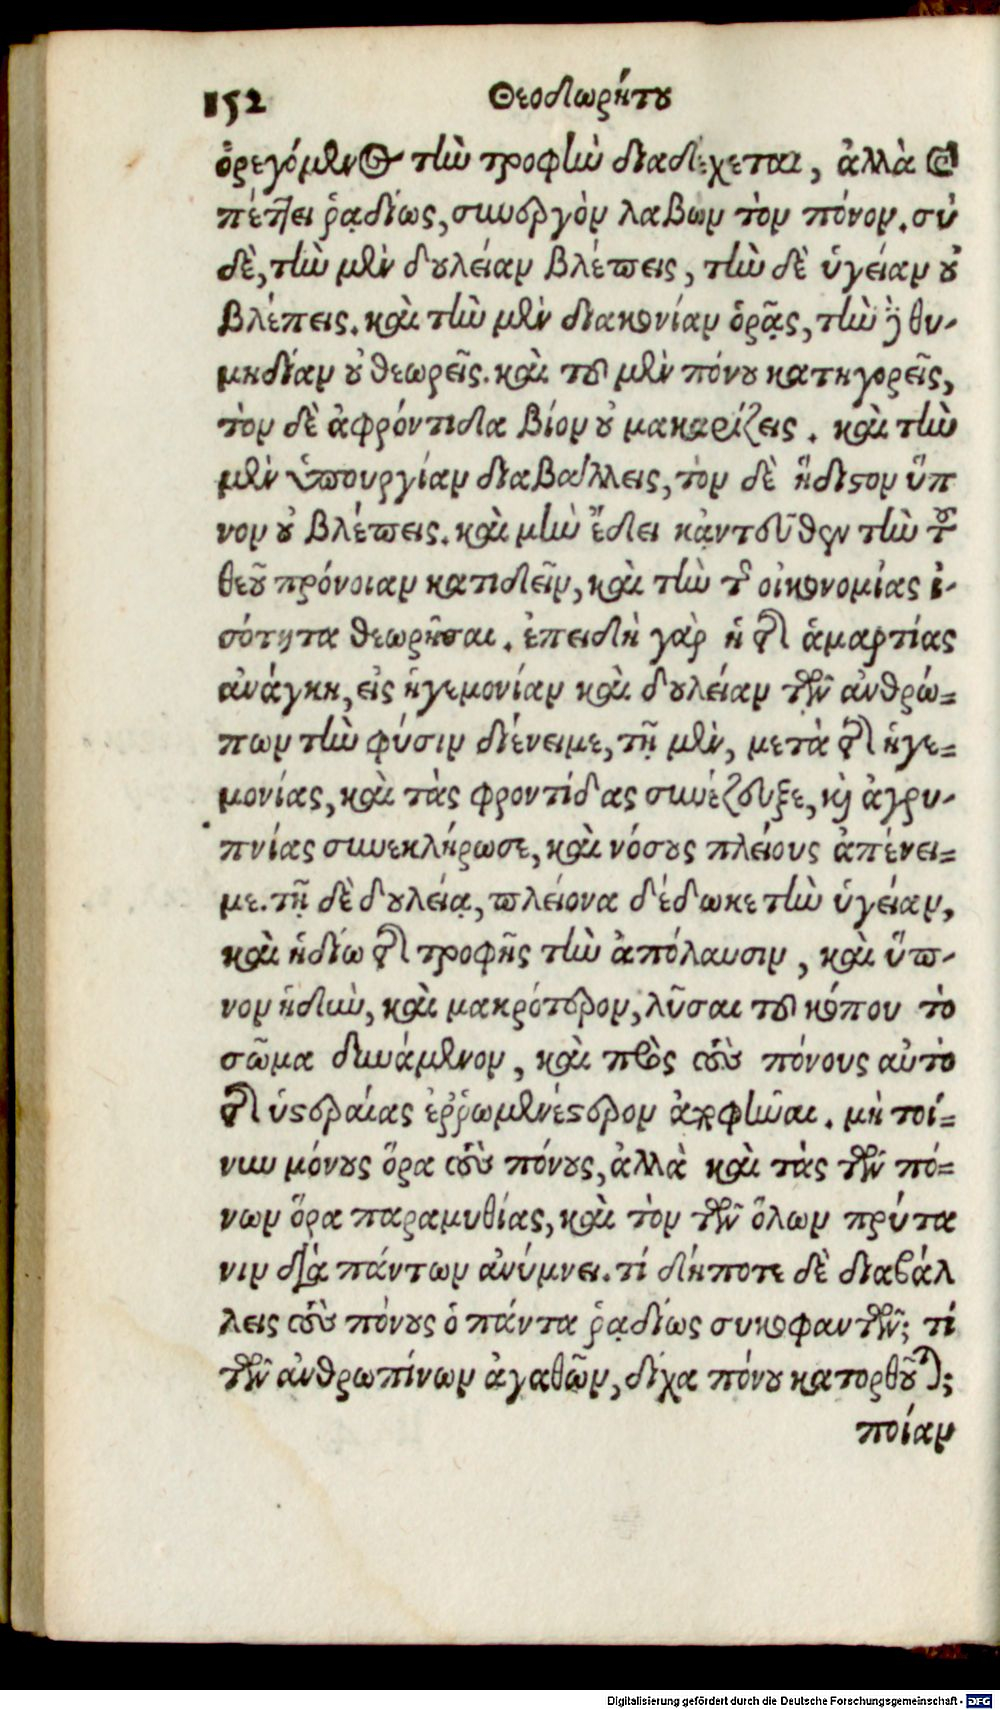 152 Θεοδωρήτου
ὀρεγόμενος τὴν τροφὴν διαδέχεται, ἀλλὰ καὶ
πέττει ῥᾳδίως, συνεργὸν λαβὼν τὸν πόνον. σὺ
δὲ, τὴν μὲν δουλείαν βλέπεις, τὴν δὲ ὑγείαν οὐ
βλέπεις. καὶ τὴν μὲν διακονίαν ὁρᾷς, τὴν δὲ θυ-
μηδίαν οὐ θεωρεῖς. καὶ τοῦ μὲν πόνου κατηγορεῖς,
τὸν δὲ ἀφρόντιδα βίον οὐ μακαρίζεις. καὶ τὴν
μὲν ὑπουργίαν διαβάλλεις, τὸν δὲ ἥδιστον ὕπ
νον οὐ βλέπεις. καὶ μὴν ἔδει κᾀντεῦθεν τὴν τοῦ
θεοῦ πρόνοιαν κατιδεῖν, καὶ τὴν τῆς οἰκονομίας ἰ-
σότητα θεωρῆσαι. ἐπειδὴ γὰρ ἡ τῆς ἁμαρτίας
ἀνάγκη, εἰς ἡγεμονίαν καὶ δουλείαν τῶν ἀνθρώ=
πων τὴν φύσιν διένειμε, τῇ μὲν, μετὰ τῆς ἡγε=
μονίας, καὶ τὰς φροντίδας συνέζευξε, καὶ ἀγρυ-
πνίας συνεκλήρωσε, καὶ νόσους πλείους ἀπένει=
με. τῇ δὲ δουλείᾳ, πλείονα δέδωκε τὴν ὑγείαν,
καὶ ἡδίω τῆς τροφῆς τὴν ἀπόλαυσιν, καὶ ὕπ-
νον ἡδὺν, καὶ μακρότερον, λῦσαι τοῦ κόπου τὸ
σῶμα δυνάμενον, καὶ πρὸς τοὺς πόνους αὐτὸ
τῆς ὑστεραίας ἐῤῥωμενέστερον ἀποφῆναι. μὴ τοί=
νυν μόνους ὅρα τοὺς πόνους, ἀλλὰ καὶ τὰς τῶν πό=
νων ὅρα παραμυθίας, καὶ τὸν τῶν ὅλων πρύτα
νιν διὰ πάντων ἀνύμνει. τί δήποτε δὲ διαβάλ
λεις τοὺς πόνους ὁ πάντα ῥᾳδίως συκοφαντῶν; τί
τῶν ἀνθρωπίνων ἀγαθῶν, δίχα πόνου κατορθοῦται;
ποίαν
Digitalisierung gefördert durch die Deutsche Forschungsgemeinschaft - DFG